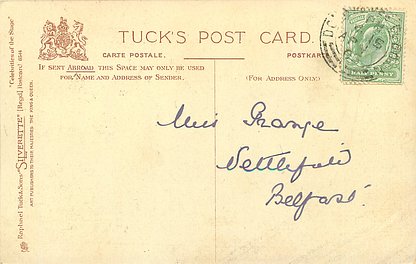 TUCK'S POST CARD.
CARTE POSTALE.
POSTKARTE
IF SENT ABROAD, THIS SPACE MAY ONLY BE USED
FOR NAME AND ADDRESS OF SENDER.
(FOR ADDRESS ONLY.)
Miss Grange
Nettlefield
Belfast.
HALFPENNY
Raphael Tuck & Sons' "SILVERETTE"
ART PUBLISHERS TO THEIR MAJESTIES THE KING & QUEEN.
"Celebrities of the Stage"